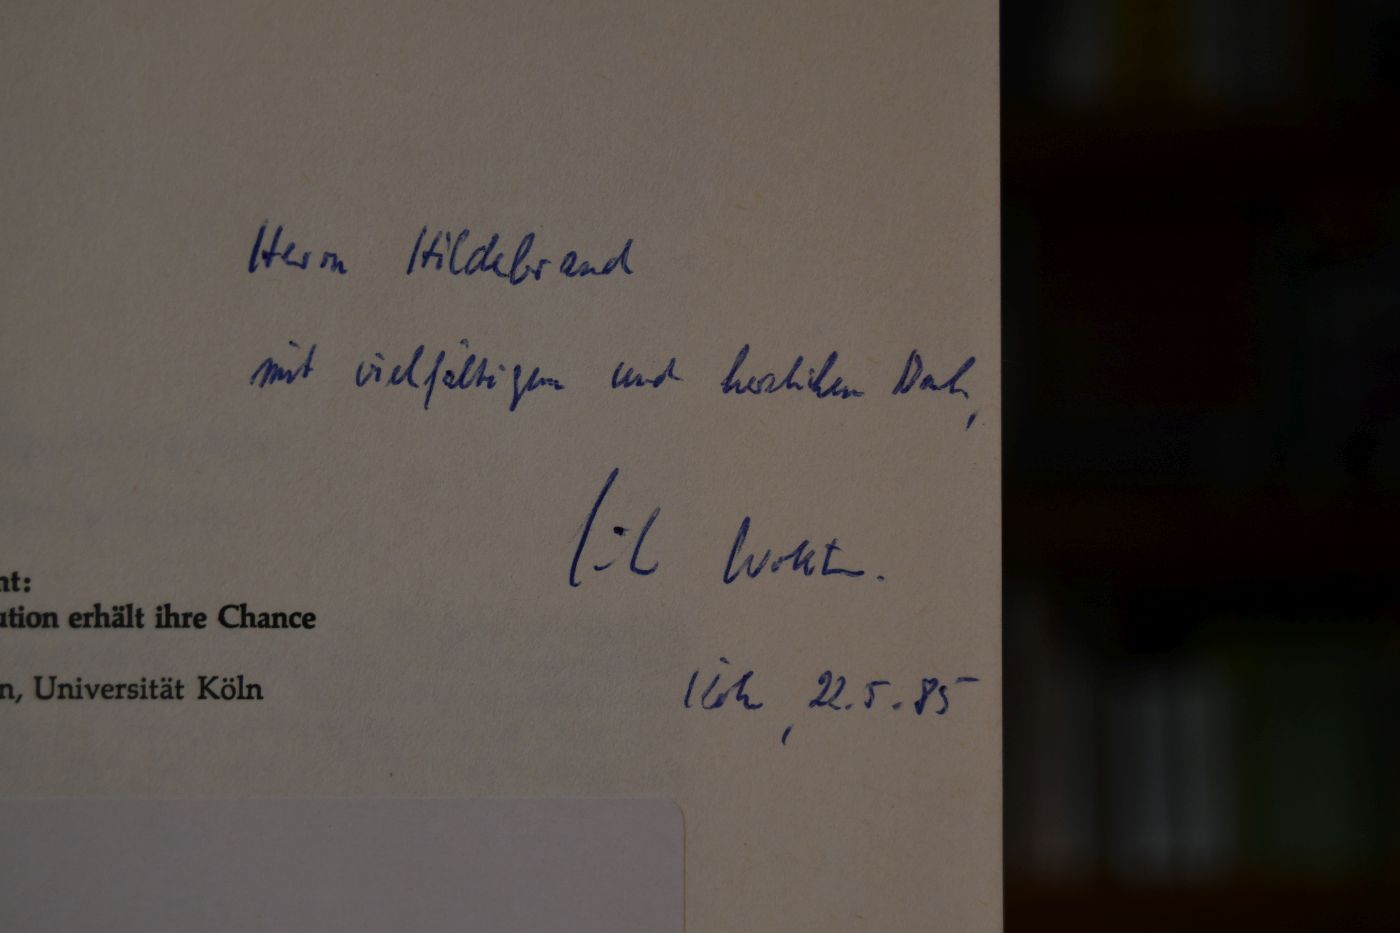 Herrn Hildebrand
mit vielfältigem und herzlichem Dank,
Köln, 22.5.85
nt:
ution erhält ihre Chance
n, Universität Köln